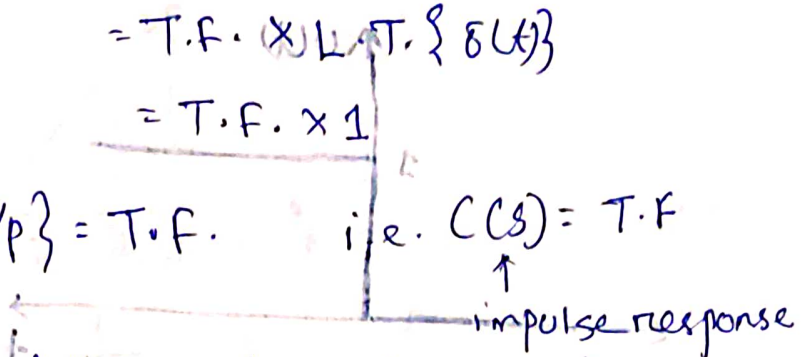 = T.F. × L.T. { δ(t)}
= T.F. × 1
/p} = T.F. i.e. C(S) = T.F
↑
impulse response